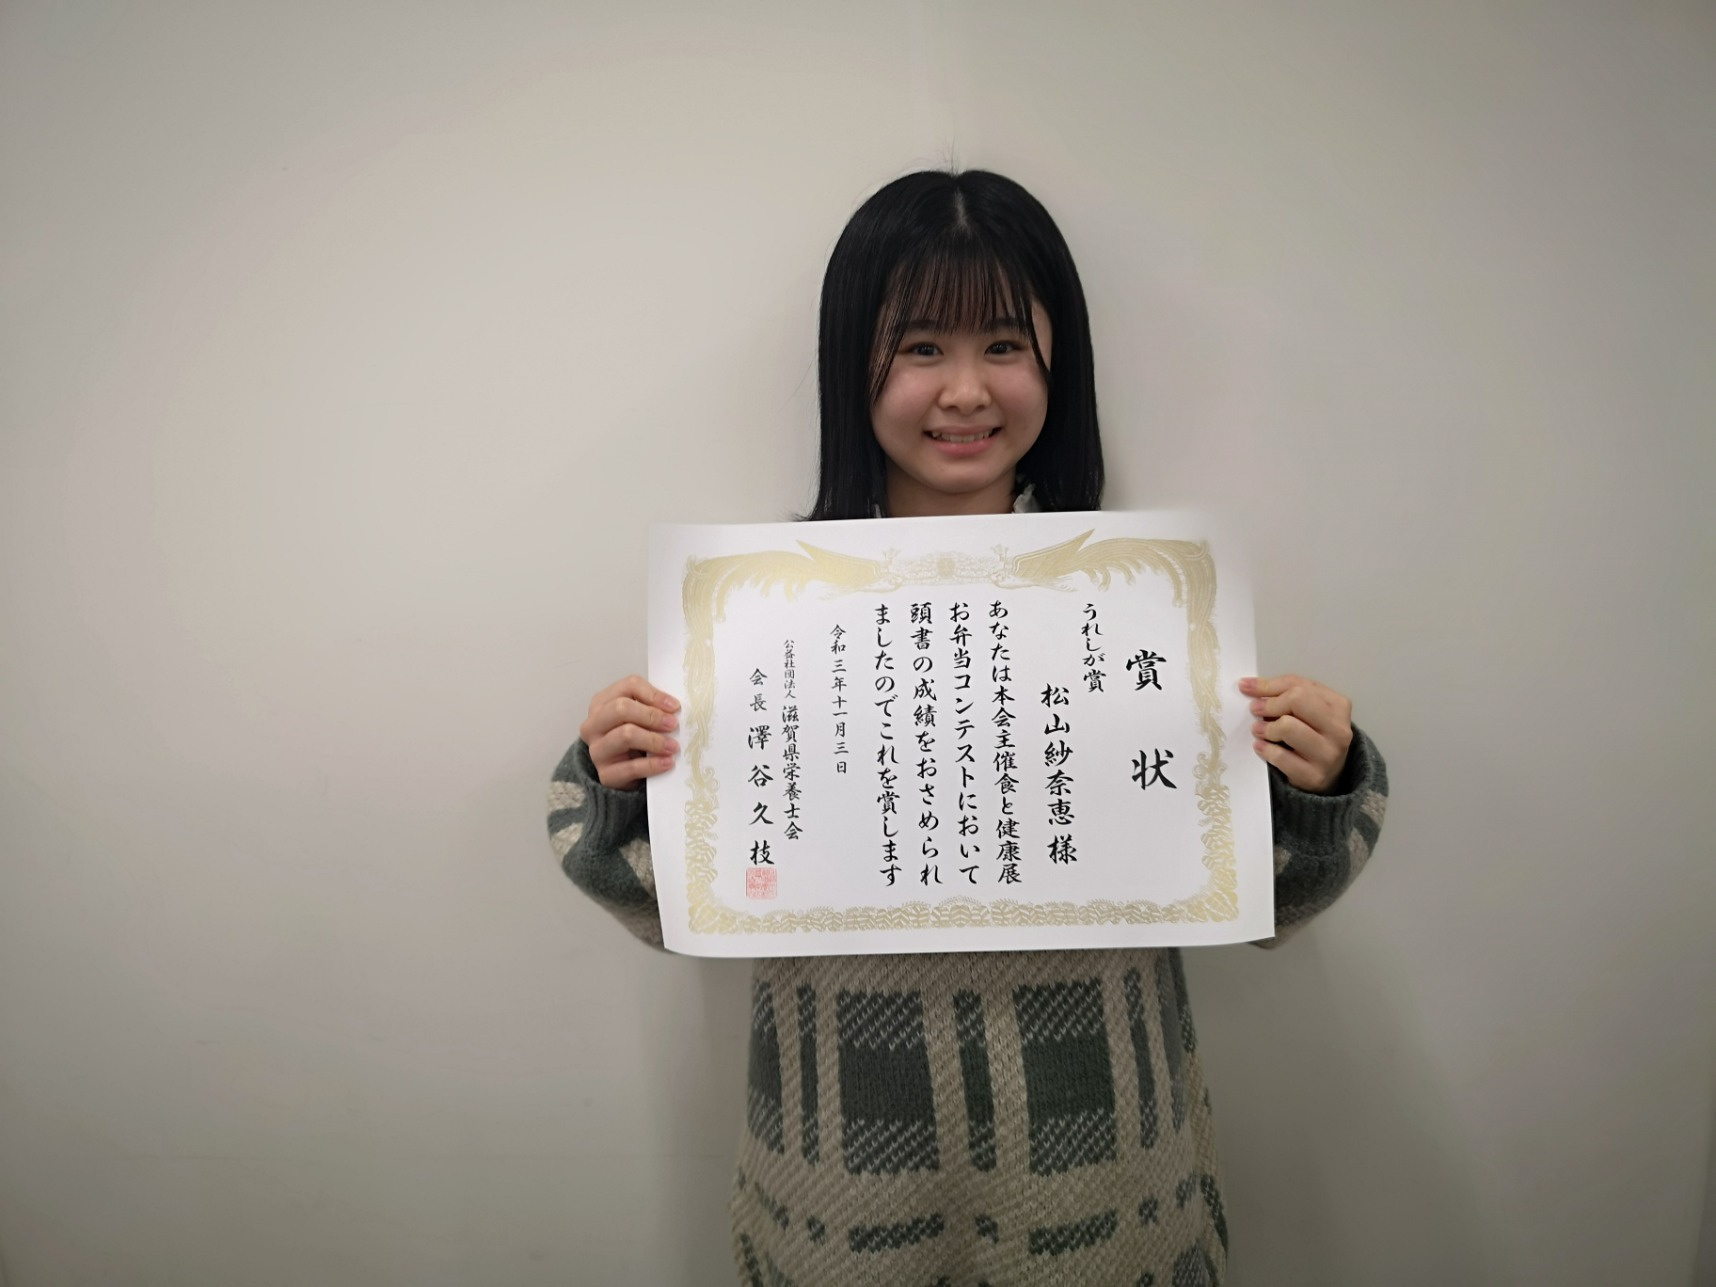 賞状
うれしが賞
松山紗奈恵様
あなたは本会主催食と健康展
お弁当コンテストにおいて
頭書の成績をおさめられ
ましたのでこれを賞します
令和三年十一月三日
公益社団法人 滋賀県栄養士会
会長 澤谷久枝